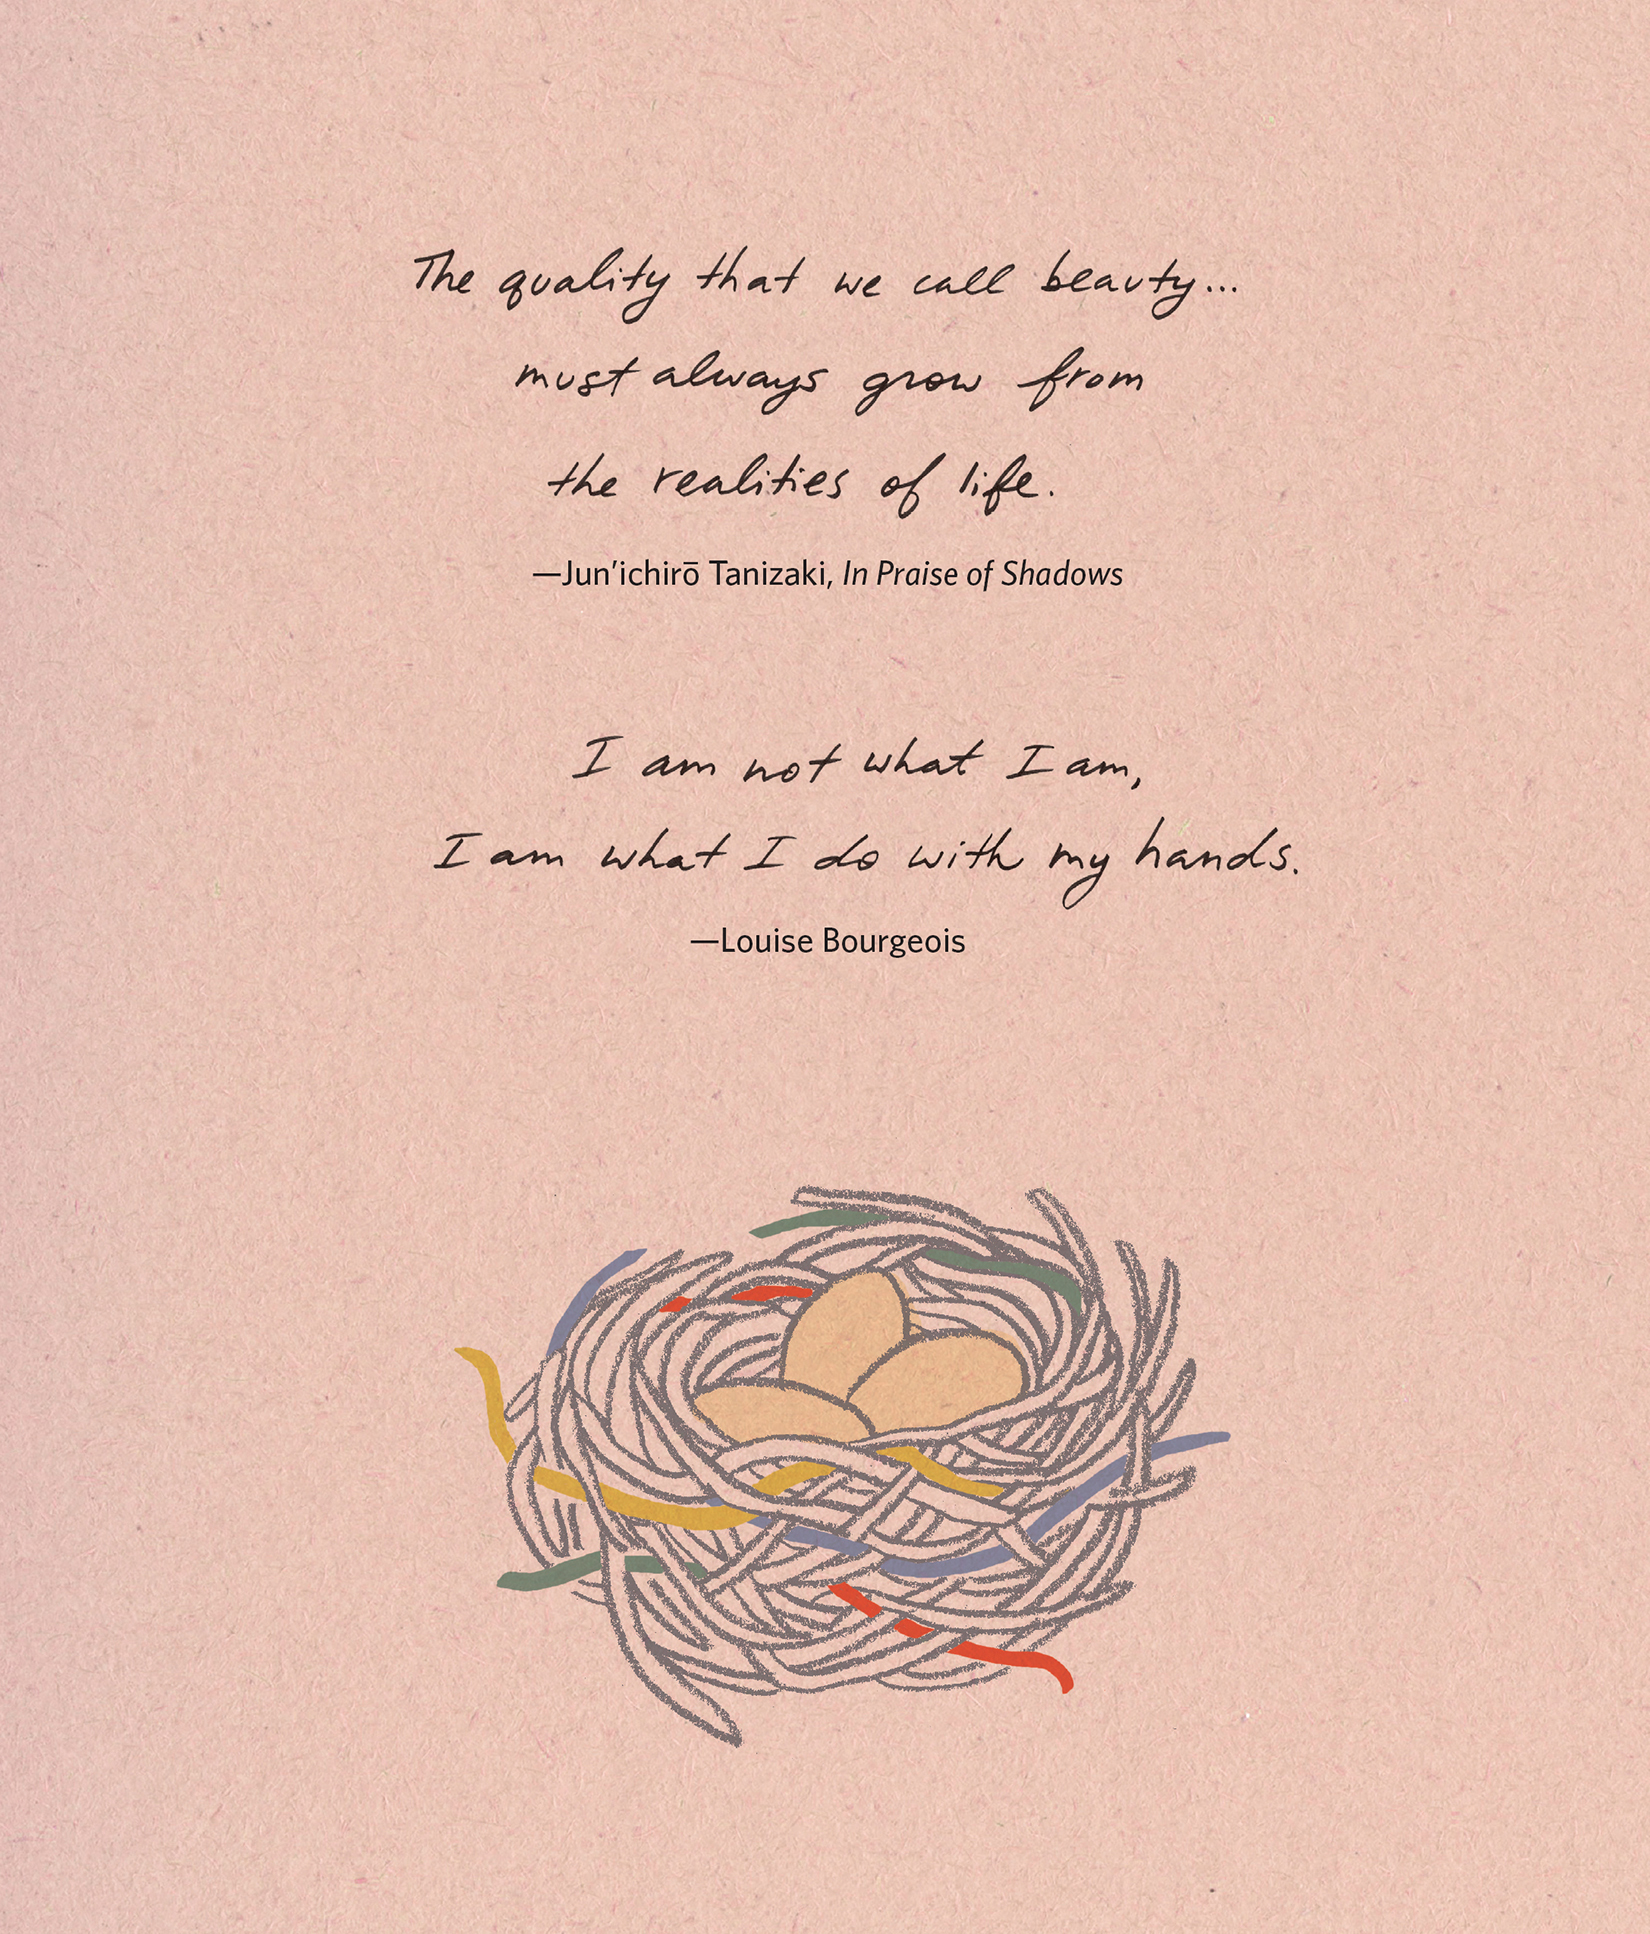 The quality that we call beauty...
must always grow from
the realities of life.
—Jun’ichirō Tanizaki, In Praise of Shadows
I am not what I am,
I am what I do with my hands.
—Louise Bourgeois